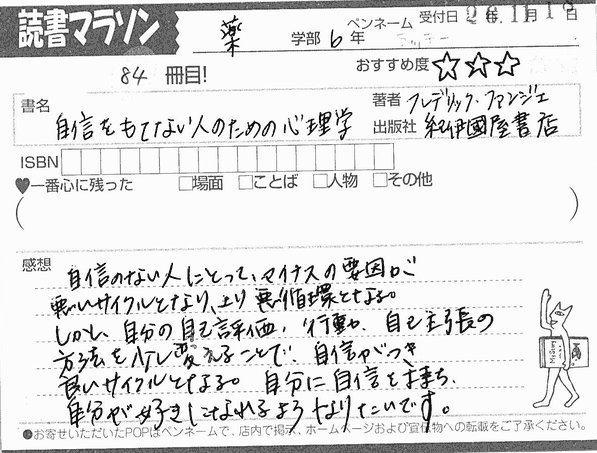 読書マラソン
薬 学部 6年
ペンネーム
受付日 26年11月18日
84 冊目!
おすすめ度 ☆☆☆
書名 自信をもてない人のための心理学
著者 フレデリック・ファンジェ
出版社 紀伊國屋書店
ISBN
♥一番心に残った □場面 □ことば □人物 □その他
感想
自信のない人にとって、マイナスの要因が
悪いサイクルとなり、より悪循環となる。
しかし、自分の自己評価、行動、自己主張の
方法を少し変えることで、自信がつき
良いサイクルとなる。自分に自信を持ち、
自分が好きになれるようなりたいです。
●お寄せいただいたPOPはペンネームで、店内で掲示、ホームページおよび宣伝物への転載をご了承ください。